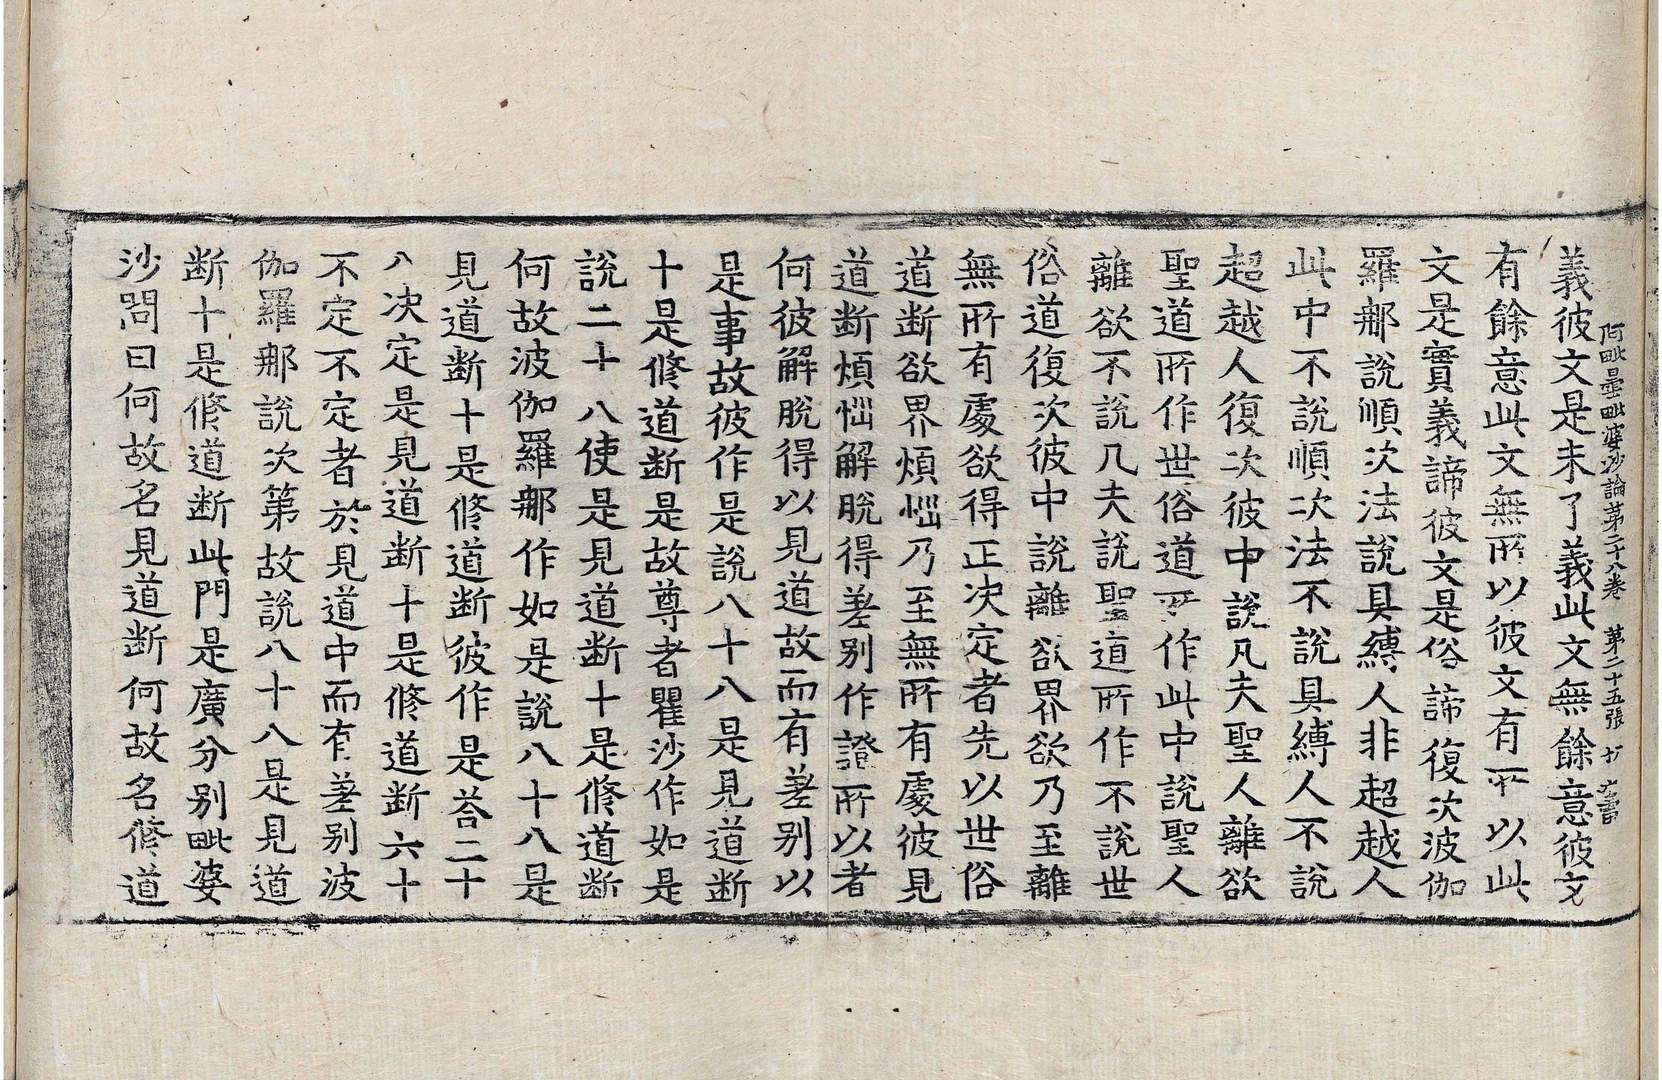 阿毗曇毗婆沙論第二十八卷 第二十五張
義彼文是未了義此文無餘意彼文
有餘意此文無所以彼文有所以此
文是實義諦彼文是俗諦復次波伽
羅那說順次法說具縛人非超越人
此中不說順次法不說具縛人不說
超越人復次彼中說凡夫聖人離欲
聖道所作世俗道所作此中說聖人
離欲不說凡夫說聖道所作不說世
俗道復次彼中說離欲界欲乃至離
無所有處欲得正决定者先以世俗
道断欲界煩惱乃至無所有處彼見
道断煩惱解脫得差别作證所以者
何彼解脫得以見道故而有差别以
是事故彼作是說八十八是見道断
十是修道断是故尊者瞿沙作如是
說二十八使是見道断十是修道断
何故波伽羅那作如是說八十八是
見道断十是修道断彼作是荅二十
八决定是見道断十是修道断六十
不定不定者於見道中而有差别波
伽羅那說次第故說八十八是見道
断十是修道断此門是廣分别毗婆
沙問曰何故名見道断何故名修道